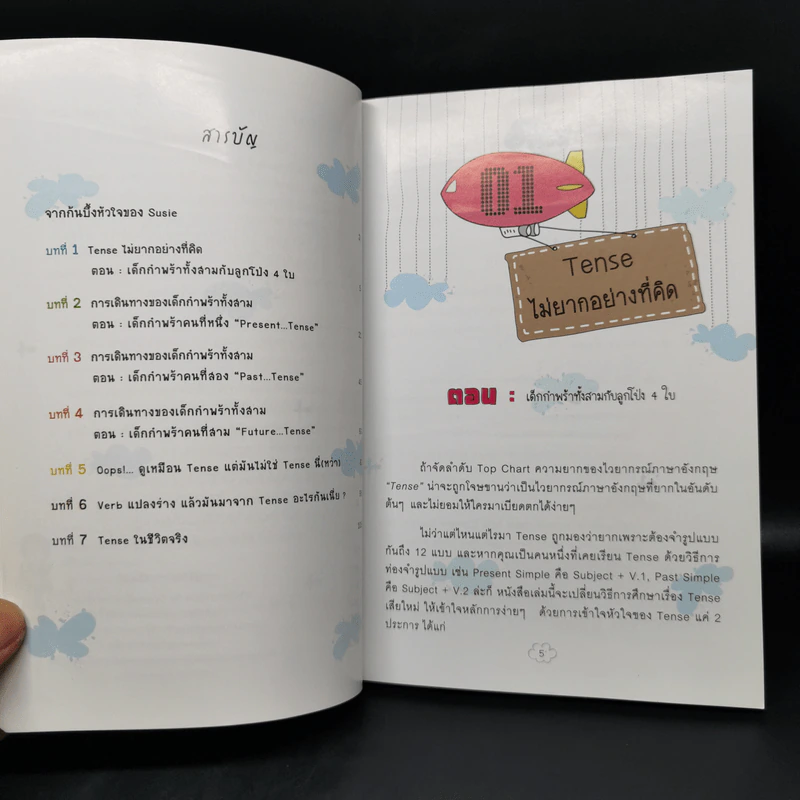 สารบัญ
จากก้นบึ้งหัวใจของ Susie
บทที่ 1 Tense ไม่ยากอย่างที่คิด
ตอน : เด็กกำพร้าทั้งสามกับลูกโป่ง 4 ใบ
บทที่ 2 การเดินทางของเด็กกำพร้าทั้งสาม
ตอน : เด็กกำพร้าคนที่หนึ่ง “Present...Tense”
บทที่ 3 การเดินทางของเด็กกำพร้าทั้งสาม
ตอน : เด็กกำพร้าคนที่สอง “Past...Tense”
บทที่ 4 การเดินทางของเด็กกำพร้าทั้งสาม
ตอน : เด็กกำพร้าคนที่สาม “Future...Tense”
บทที่ 5 Oops!... ดูเหมือน Tense แต่มันไม่ใช่ Tense นี่(หว่า)
บทที่ 6 Verb แปลงร่าง แล้วมันมาจาก Tense อะไรกันเนี่ย ?
บทที่ 7 Tense ในชีวิตจริง
01
Tense
ไม่ยากอย่างที่คิด
ตอน : เด็กกำพร้าทั้งสามกับลูกโป่ง 4 ใบ
ถ้าจัดลำดับ Top Chart ความยากของไวยากรณ์ภาษาอังกฤษ
“Tense” น่าจะถูกโจษขานว่าเป็นไวยากรณ์ภาษาอังกฤษที่ยากในอันดับ
ต้นๆ และไม่ยอมให้ใครมาเบียดตกได้ง่ายๆ
ไม่ว่าแต่ไหนแต่ไรมา Tense ถูกมองว่ายากเพราะต้องจำรูปแบบ
กันถึง 12 แบบ และหากคุณเป็นคนหนึ่งที่เคยเรียน Tense ด้วยวิธีการ
ท่องจำรูปแบบ เช่น Present Simple คือ Subject + V.1, Past Simple
คือ Subject + V.2 ล่ะก็ หนังสือเล่มนี้จะเปลี่ยนวิธีการศึกษาเรื่อง Tense
เสียใหม่ ให้เข้าใจหลักการง่ายๆ ด้วยการเข้าใจหัวใจของ Tense แค่ 2
ประการ ได้แก่
5